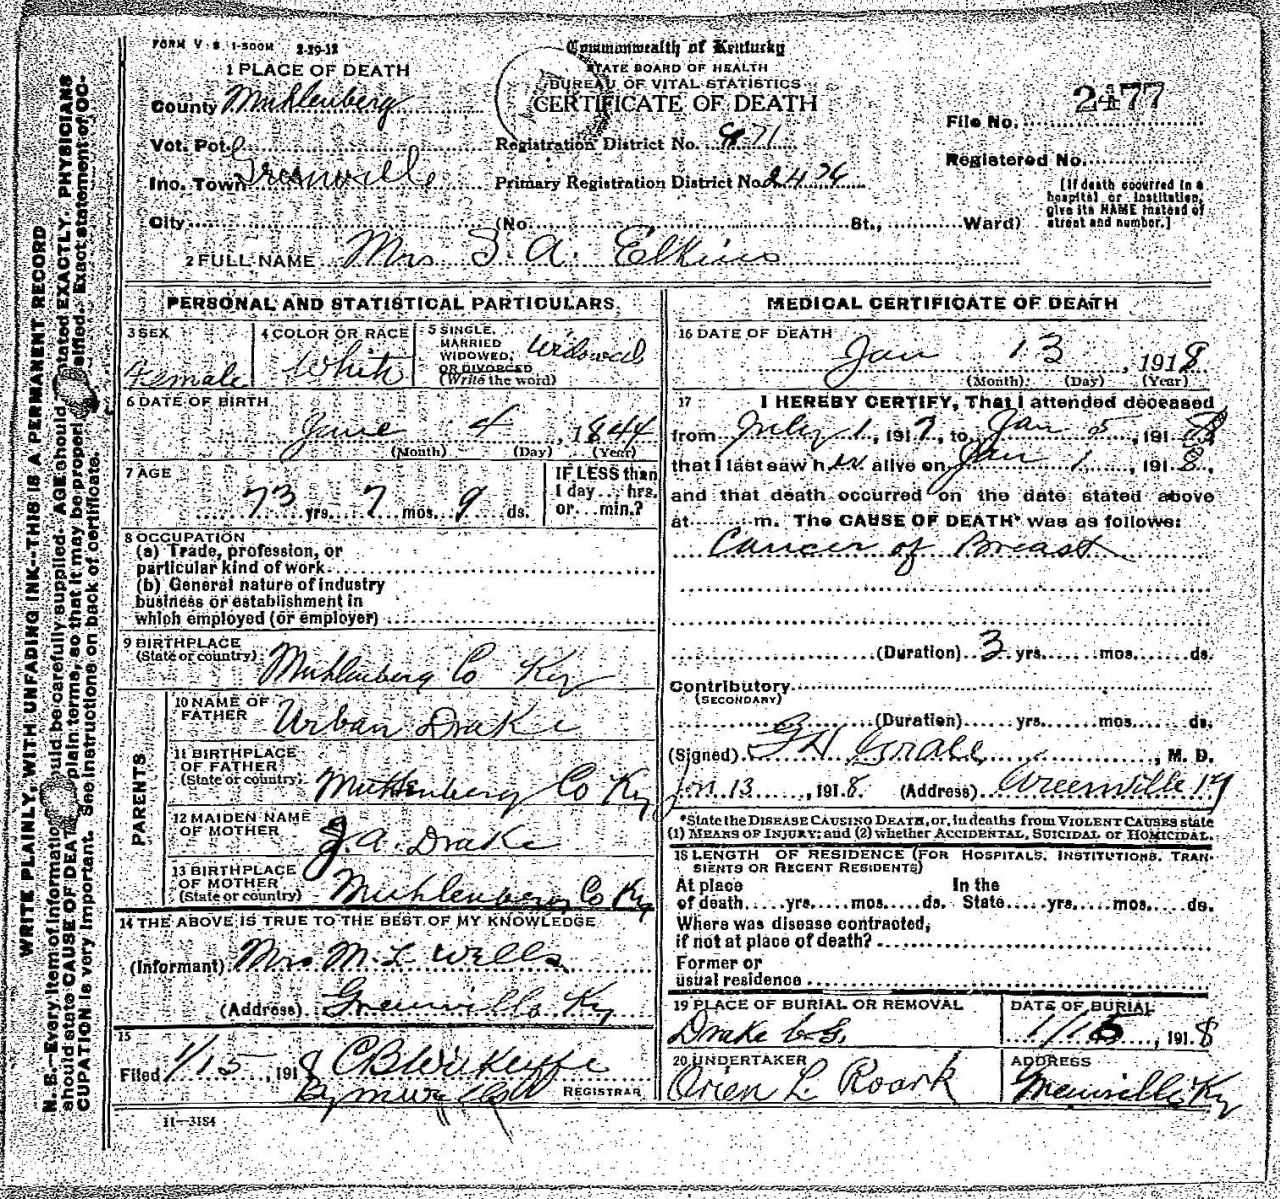 FORM V. S. 1-500M 2-29-12
Commonwealth of Kentucky
STATE BOARD OF HEALTH
BUREAU OF VITAL STATISTICS
CERTIFICATE OF DEATH
1 PLACE OF DEATH
County Muhlenberg
Vot. Pct.
Inc. Town Greenville
City (No. St., Ward)
Registration District No. 871
Primary Registration District No. 2476
2477
File No.
Registered No.
[If death occurred in a
hospital or institution,
give its NAME instead of
street and number.]
2 FULL NAME Mrs S. A. Elkins
PERSONAL AND STATISTICAL PARTICULARS
3 SEX
Female
4 COLOR OR RACE
White
5 SINGLE,
MARRIED
WIDOWED,
OR DIVORCED
(Write the word)
Widowed
6 DATE OF BIRTH
June 4, 1844
(Month) (Day) (Year)
7 AGE
73 yrs. 7 mos. 9 ds.
IF LESS than
1 day ... hrs.
or ... min.?
8 OCCUPATION
(a) Trade, profession, or
particular kind of work
(b) General nature of industry
business or establishment in
which employed (or employer)
9 BIRTHPLACE
(State or country)
Muhlenberg Co Ky
PARENTS
10 NAME OF
FATHER
Urban Drake
11 BIRTHPLACE
OF FATHER
(State or country)
Muhlenberg Co Ky
12 MAIDEN NAME
OF MOTHER
J. A. Drake
13 BIRTHPLACE
OF MOTHER
(State or country)
Muhlenberg Co Ky
14 THE ABOVE IS TRUE TO THE BEST OF MY KNOWLEDGE
(Informant) Mrs M. L Wells
(Address) Greenville Ky
15
Filed 1/15, 1918
By
REGISTRAR
11-3184
MEDICAL CERTIFICATE OF DEATH
16 DATE OF DEATH
Jan 13, 1918
(Month) (Day) (Year)
17 I HEREBY CERTIFY, That I attended deceased
from July 1, 1917, to Jan 5, 1918,
that I last saw her alive on Jan 1, 1918,
and that death occurred on the date stated above
at m. The CAUSE OF DEATH* was as follows:
Cancer of Breast
(Duration) 3 yrs. mos. ds.
Contributory
(SECONDARY)
(Duration) yrs. mos. ds.
(Signed) M. D.
Jan 13, 1918. (Address) Greenville Ky
*State the DISEASE CAUSING DEATH, or, in deaths from VIOLENT CAUSES state
(1) MEANS OF INJURY; and (2) whether ACCIDENTAL, SUICIDAL or HOMICIDAL.
18 LENGTH OF RESIDENCE (FOR HOSPITALS, INSTITUTIONS, TRAN-
SIENTS OR RECENT RESIDENTS)
At place In the
of death yrs. mos. ds. State yrs. mos. ds.
Where was disease contracted,
if not at place of death?
Former or
usual residence
19 PLACE OF BURIAL OR REMOVAL
Drake G. G.
DATE OF BURIAL
1/15, 1918
20 UNDERTAKER
Orien L Roark
ADDRESS
Greenville Ky
WRITE PLAINLY, WITH UNFADING INK--THIS IS A PERMANENT RECORD
N. B.--Every item of information should be carefully supplied. AGE should stated EXACTLY. PHYSICIANS
should state CAUSE OF DEATH plain terms, so that it may be properly classified. Exact statement of OC-
CUPATION is very important. See instructions on back of certificate.